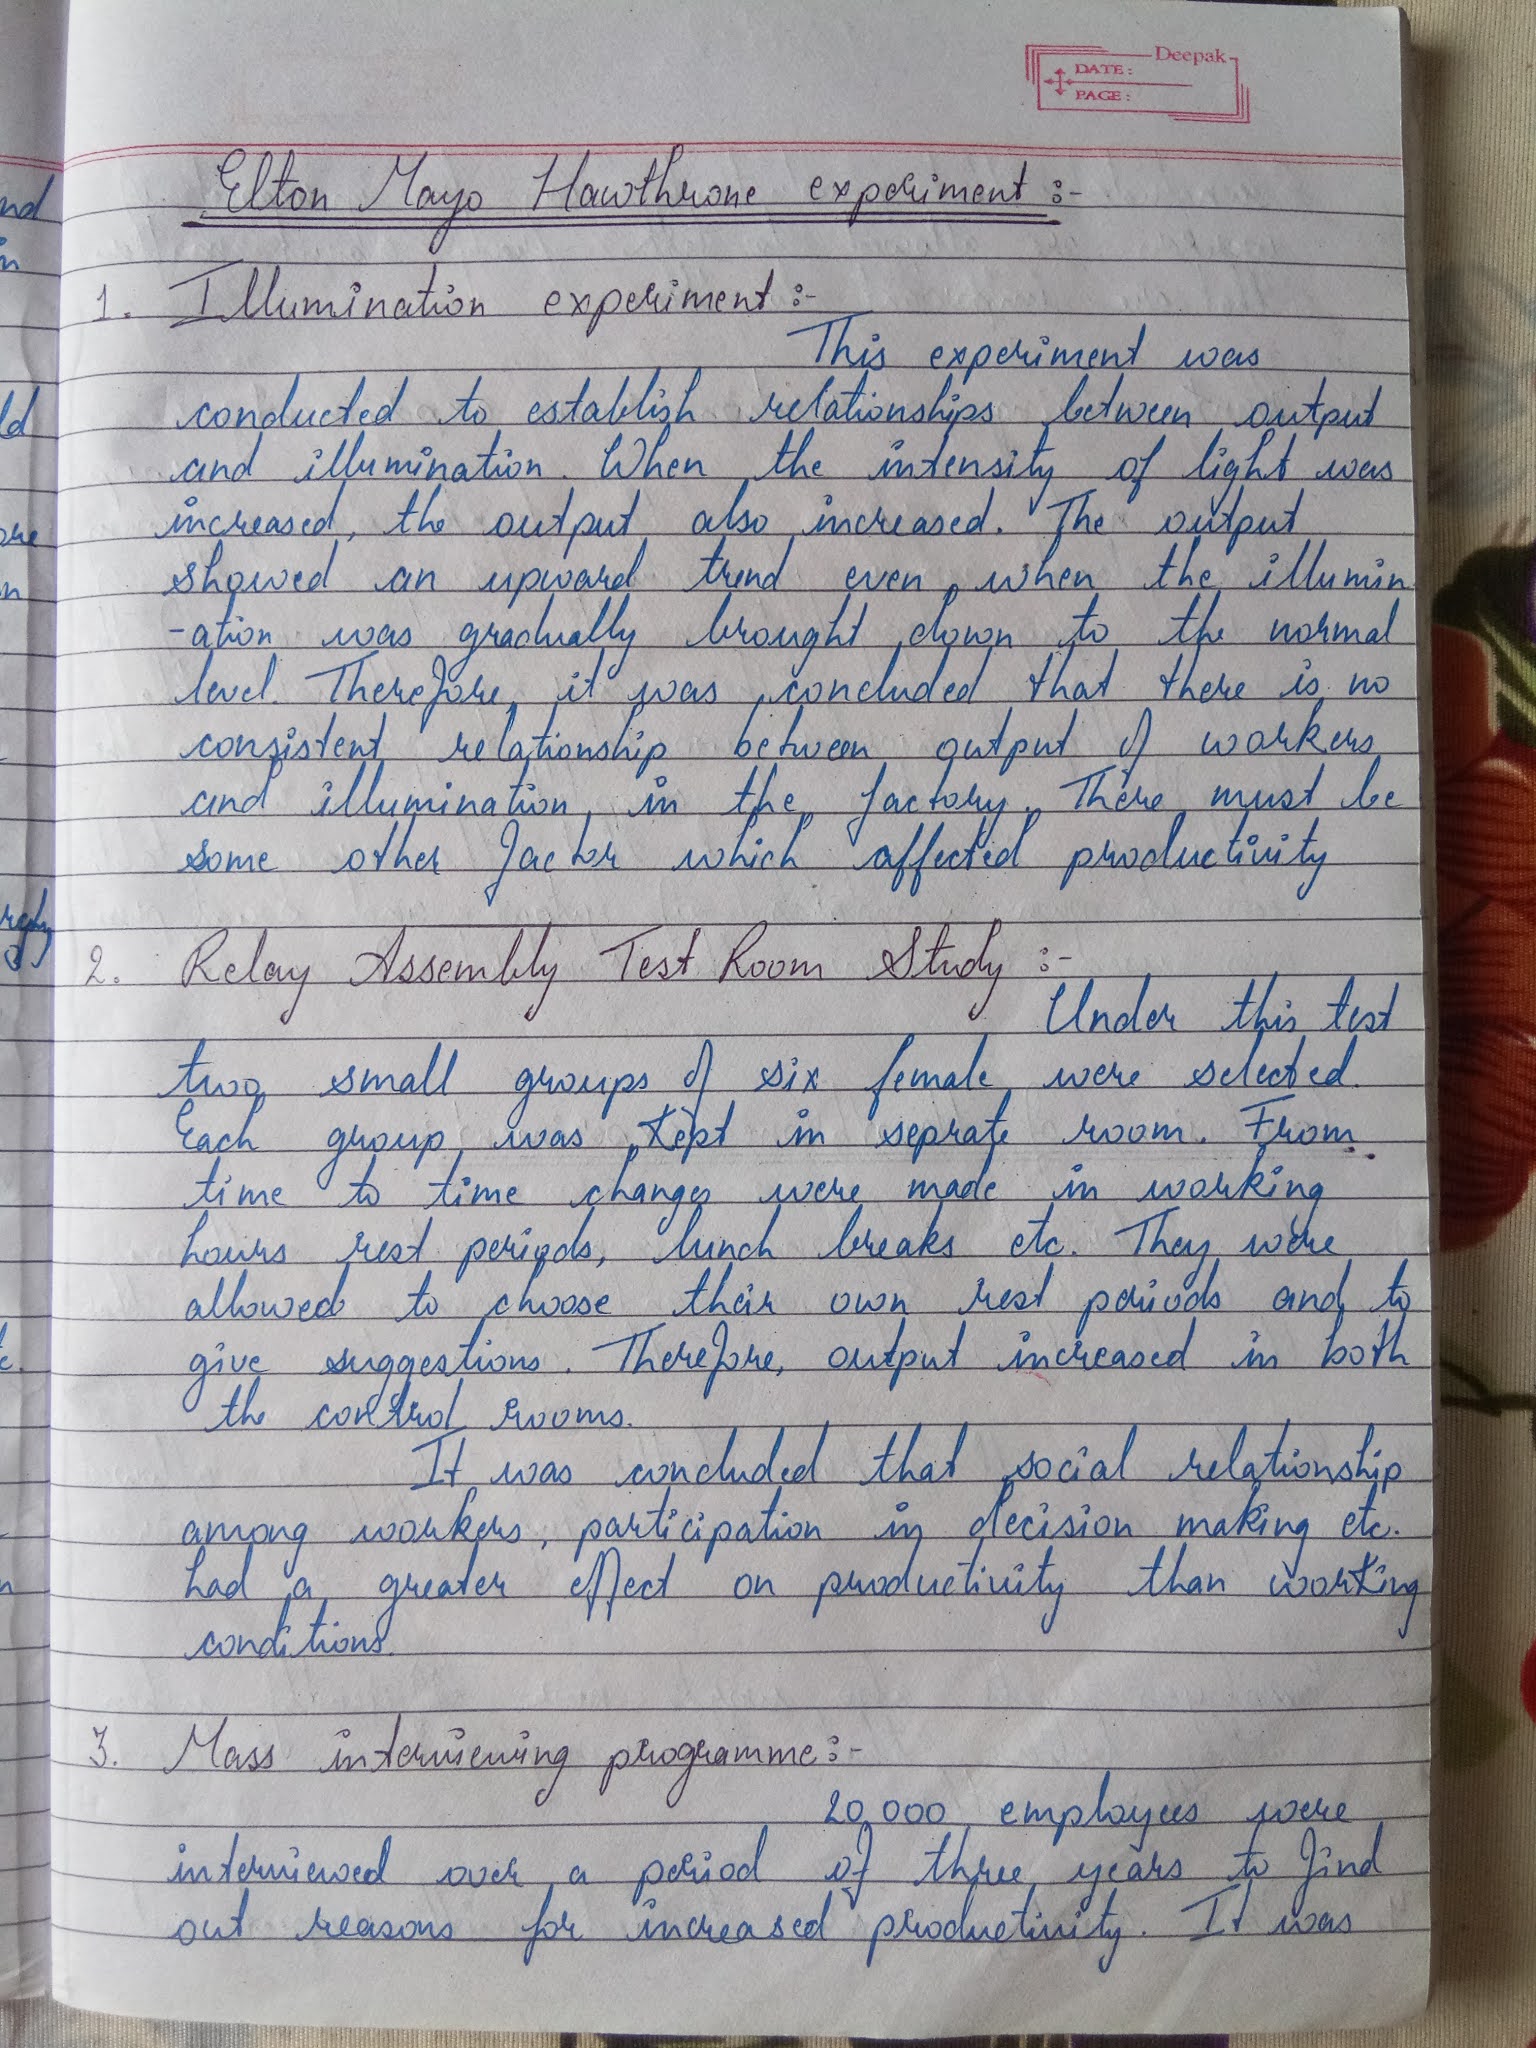 Deepak
DATE:
PAGE:
Elton Mayo Hawthrone experiment :-
1. Illumination experiment :-
This experiment was
conducted to establish relationships between output
and illumination. When the intensity of light was
increased, the output also increased. The output
showed an upward trend even when the illumin
-ation was gradually brought down to the normal
level. Therefore, it was concluded that there is no
consistent relationship between output of workers
and illumination in the factory. There must be
some other factor which affected productivity
2. Relay Assembly Test Room Study :-
Under this test
two small groups of six female were selected.
Each group was kept in seprate room. From
time to time changes were made in working
hours rest periods, lunch breaks etc. They were
allowed to choose their own rest periods and to
give suggestions. Therefore, output increased in both
the control rooms.
It was concluded that social relationship
among workers, participation in decision making etc.
had a greater effect on productivity than working
conditions.
3. Mass interviewing programme :-
20,000 employees were
interviewed over a period of three years to find
out reasons for increased productivity. It was